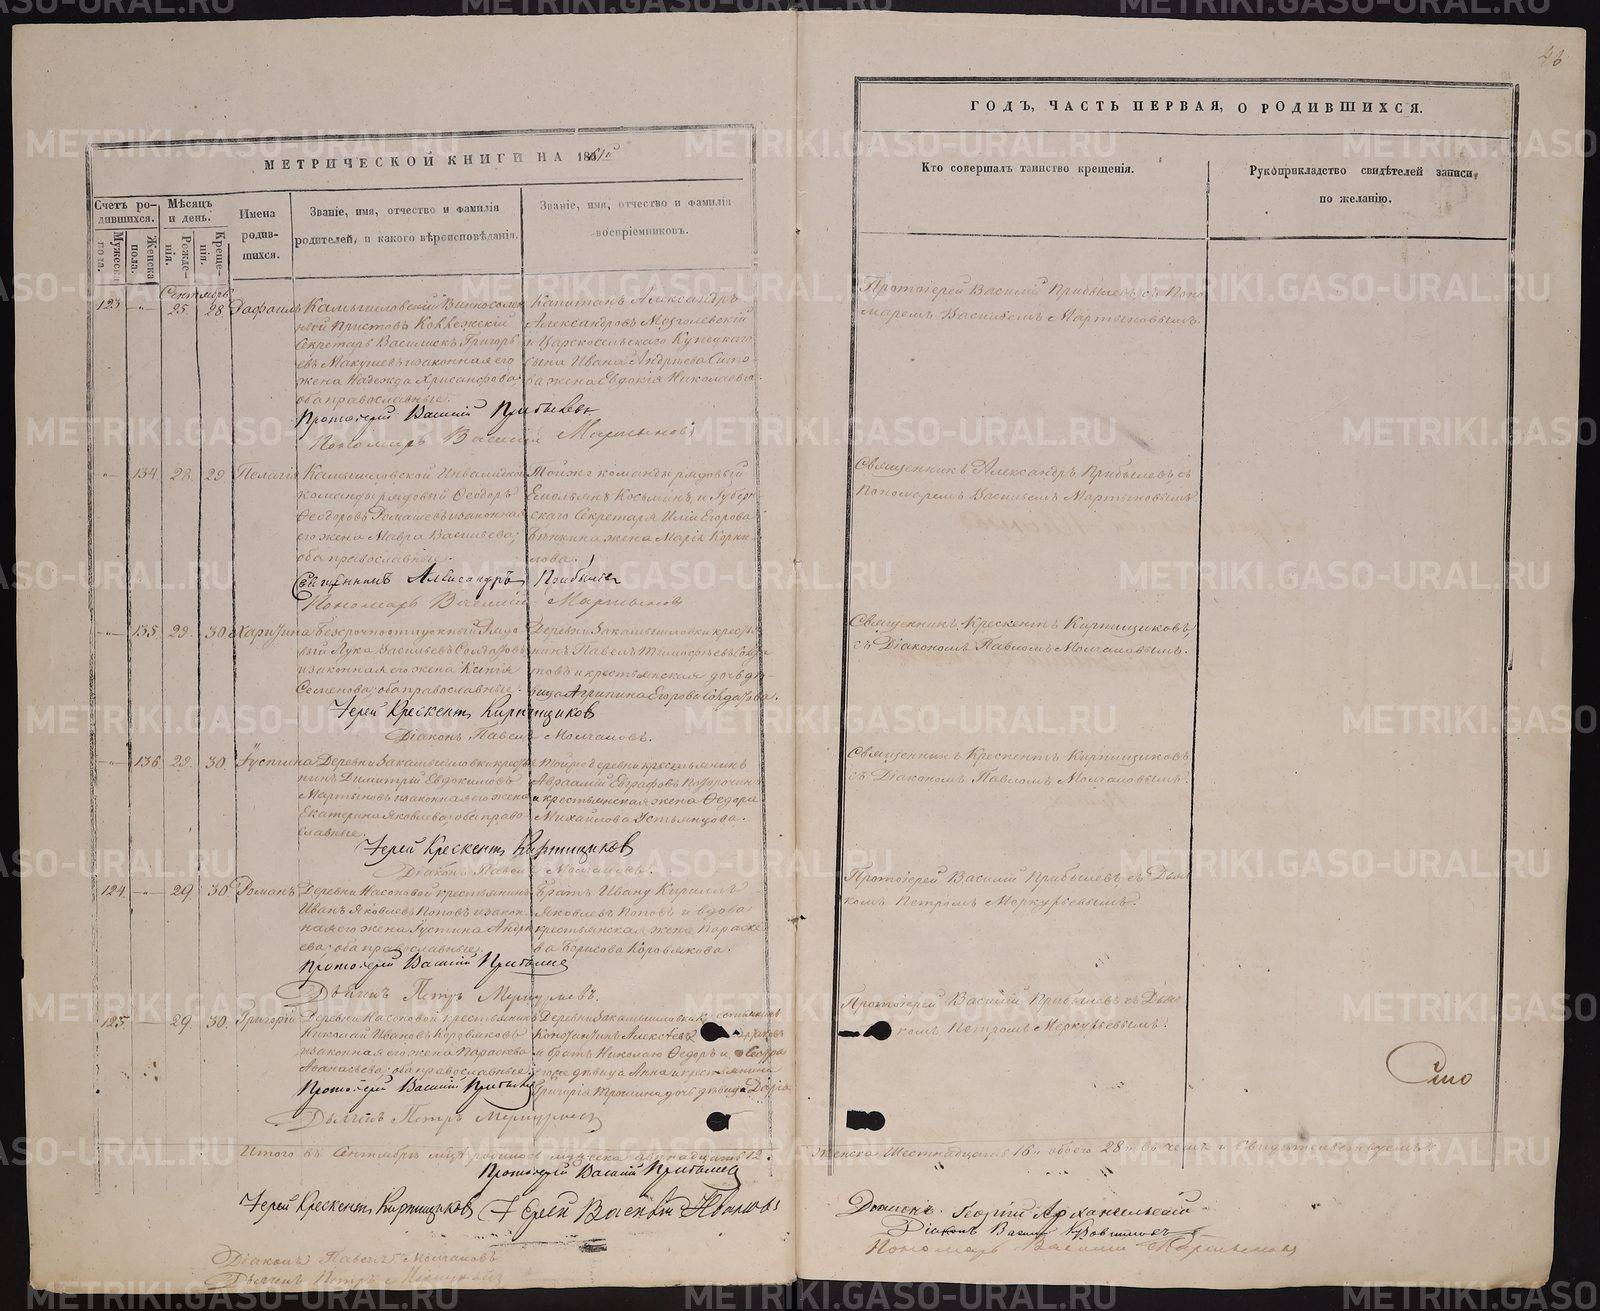 МЕТРИЧЕСКОЙ КНИГИ НА 1861й
Счетъ родившихся.
Мужеска пола.
Женска пола.
Мѣсяцъ и день.
Рожденія.
Крещенія.
Имена родившихся.
Званіе, имя, отчество и фамилія
родителей, и какого вѣроисповѣданія.
Званіе, имя, отчество и фамилія
воспріемниковъ.
Сентябрь
123. 25 28 Рафаилъ
Камышловскій Винносоляной Приставъ Коллежскій
Секретарь Василискъ Григорьевъ Макушевъ и законная его
жена Надежда Хрисанфова
оба православные.
Капитанъ Александръ
Александровъ
и Царскосельскаго Купецкаго
сына Ивана Андреева
жена Евдокія Николаева.
Протоіерей Василій Прибылевъ.
Пономарь Василій Мартыновъ
134. 28 29 Пелагія
Камышловской Инвалидной
команды рядовый Ѳеодоръ
Ѳеодоровъ Ромашевъ и законная
его жена Мавра Васильева;
оба православные.
Тойже команды рядовый
Емельянъ Косьминъ, и Губернскаго Секретаря Иліи Егорова
жена Марія Корнилова.
Священникъ Александръ Прибылевъ
Пономарь Василій Мартыновъ
135. 29. 30 Харитина
Безсрочноотпускный Рядовый Лука Васильевъ Солдатовъ
и законная его жена Ксенія
Семенова; оба православные.
Деревни Закамышловки крестьянинъ Павелъ Тимофѣевъ Солдатовъ и крестьянская дочь дѣвица Агрипина Егорова Солдатова.
Іерей Крескентъ Кирпищиковъ
Діаконъ Павелъ Молчановъ.
136 29. 30 Іустина
Деревни Закамышловки крестьянинъ Димитрій Евдокимовъ
Мартыновъ и законная его жена
Екатерина Яковлева; оба православные.
Тойже деревни крестьянинъ
Авраамій Евграфовъ
и крестьянская жена Ѳедора
Михайлова Устьянцова.
Іерей Крескентъ Кирпищиковъ
Діаконъ Павелъ Молчановъ.
124. 29 30 Романъ
Деревни Насоновой крестьянинъ
Иванъ Яковлевъ Поповъ и законная его жена Іустина Андреева; оба православные.
Братъ Ивану Кириллъ
Яковлевъ Поповъ и вдова
крестьянская жена Параскева Борисова Коровякова.
Протоіерей Василій Прибылевъ
Дьячекъ Петръ Меркурьевъ.
125. 29. 30. Григорій
Деревни Насоновой крестьянинъ
Николай Ивановъ Коровяковъ
и законная его жена Параскева
Аѳанасьева; оба православные.
Деревни Закамышловки крестьянинъ
Константинъ Алексѣевъ
и братъ Николаю Ѳедоръ и сестра
дѣвица Анна и крестьянина
Григорія дочь дѣвица Дарья
Протоіерей Василій Прибылевъ
Дьячекъ Петръ Меркурьевъ
Итого въ Сентябрѣ мцѣ родилось мужеска двѣнадцать 12.
Протоіерей Василій Прибылевъ
Іерей Крескентъ Кирпищиковъ
Іерей Василій
Діаконъ Павелъ Молчановъ
Дьячекъ Петръ Меркурьевъ
ГОДЪ, ЧАСТЬ ПЕРВАЯ, О РОДИВШИХСЯ.
Кто совершалъ таинство крещенія.
Рукоприкладство свидѣтелей записи
по желанію.
Протоіерей Василій Прибылевъ съ Пономаремъ Васильемъ Мартыновымъ.
Священникъ Александръ Прибылевъ съ
Пономаремъ Васильемъ Мартыновымъ
Священникъ Крескентъ Кирпищиковъ,
съ Діакономъ Павломъ Молчановымъ.
Священникъ Крескентъ Кирпищиковъ
съ Діакономъ Павломъ Молчановымъ.
Протоіерей Василій Прибылевъ съ Дьячкомъ Петромъ Меркурьевымъ.
Протоіерей Василій Прибылевъ съ Дьячкомъ Петромъ Меркурьевымъ.
Женска Шестнадцать 16 обоего 28 въ чемъ и свидѣтельствуемъ:
Діаконъ Георгій Архангельскій
Діаконъ Василій
Пономарь Василій Мартыновъ
METRIKI.GASO-URAL.RU